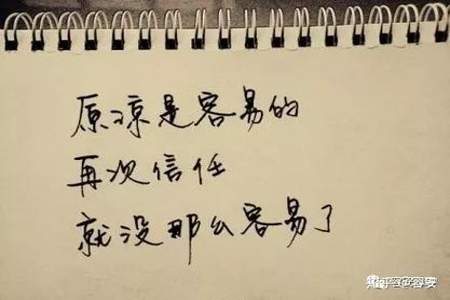 原谅是容易的
再次信任
就没那么容易了